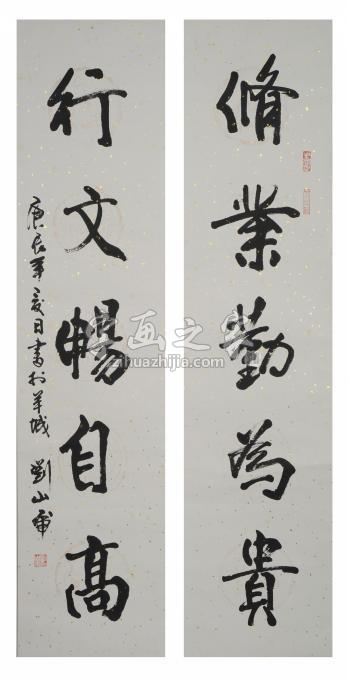 脩業勤為貴
行文暢自高
庚辰年夏日書於羊城 劉山
字画之家
zihuazhijia.com